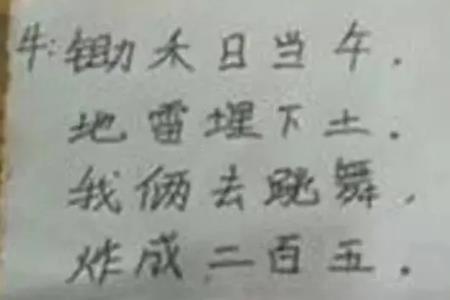 牛:锄禾日当午.
地雷埋下土.
我俩去跳舞,
炸成二百五.